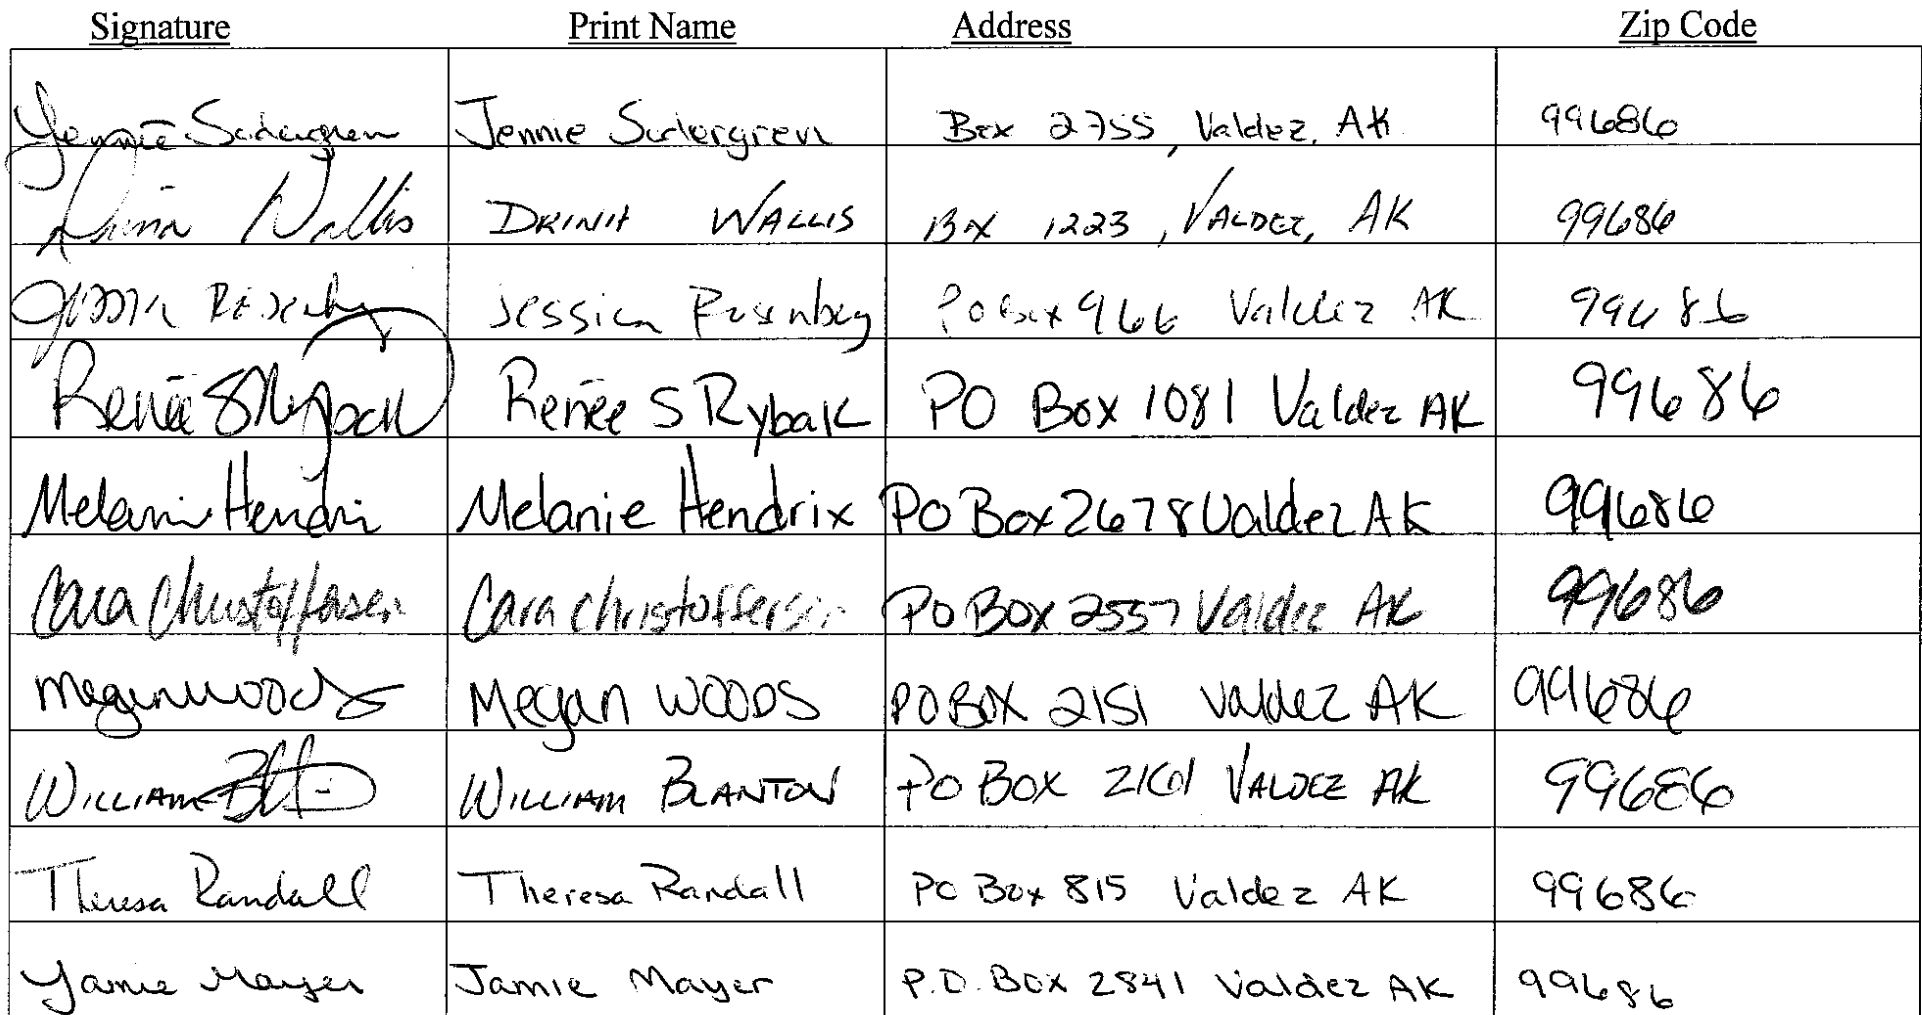 Signature Print Name Address Zip Code
Jennie Sodergren Jennie Sodergren Box 2755, Valdez, AK 99686
Wallis WALLIS Box 1223, VALDEZ, AK 99686
Jessica Rosenberg Jessica Rosenberg PO Box 966 Valdez AK 99686
Renée S Rybak Renée S Rybak PO Box 1081 Valdez AK 99686
Melanie Hendrix Melanie Hendrix PO Box 2678 Valdez AK 99686
Cara Christoffersen Cara Christoffersen PO Box 2557 Valdez AK 99686
Megan Woods Megan WOODS PO BOX 2151 Valdez AK 99686
WILLIAM WILLIAM BLANTON PO BOX VALDEZ AK 99686
Theresa Randall Theresa Randall PO Box 815 Valdez AK 99686
Jamie Mayer Jamie Mayer P.O. Box 2841 Valdez AK 99686